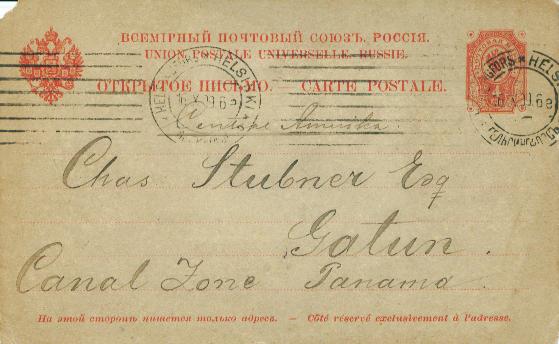 ВСЕМІРНЫЙ ПОЧТОВЫЙ СОЮЗЪ. РОССІЯ.
UNION POSTALE UNIVERSELLE. RUSSIE.
ОТКРЫТОЕ ПИСЬМО. — CARTE POSTALE.
HELSINKI
HELSI
Amerika.
Chas Stubner Esq
Gatun.
Canal Zone Panama.
На этой сторонѣ пишется только адресъ. — Côté réservé exclusivement à l'adresse.